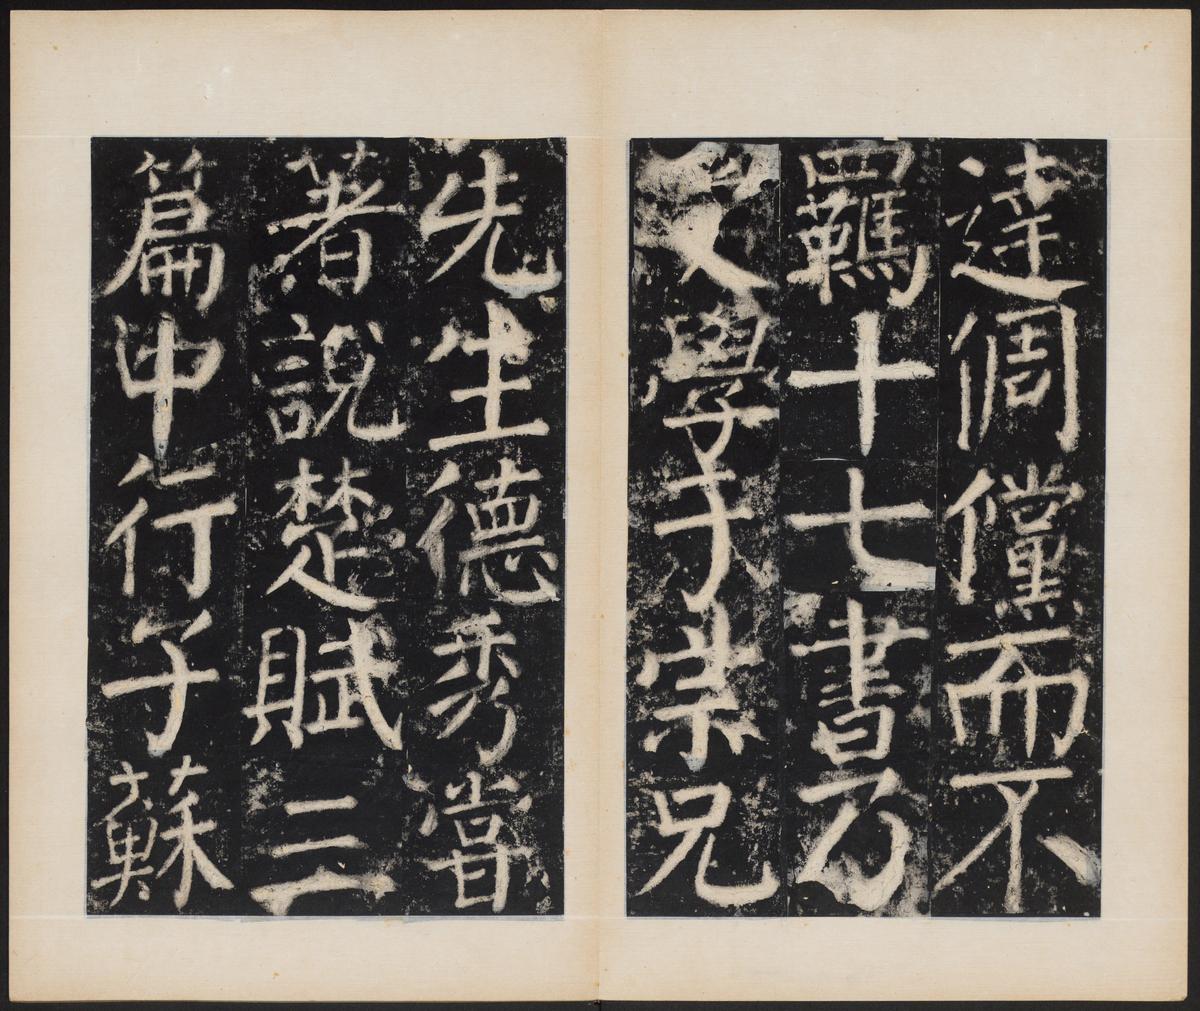 達倜儻而不
羈十七書乃
受學于宗兄
先生德秀嘗
著說楚賦三
篇中行子蘇